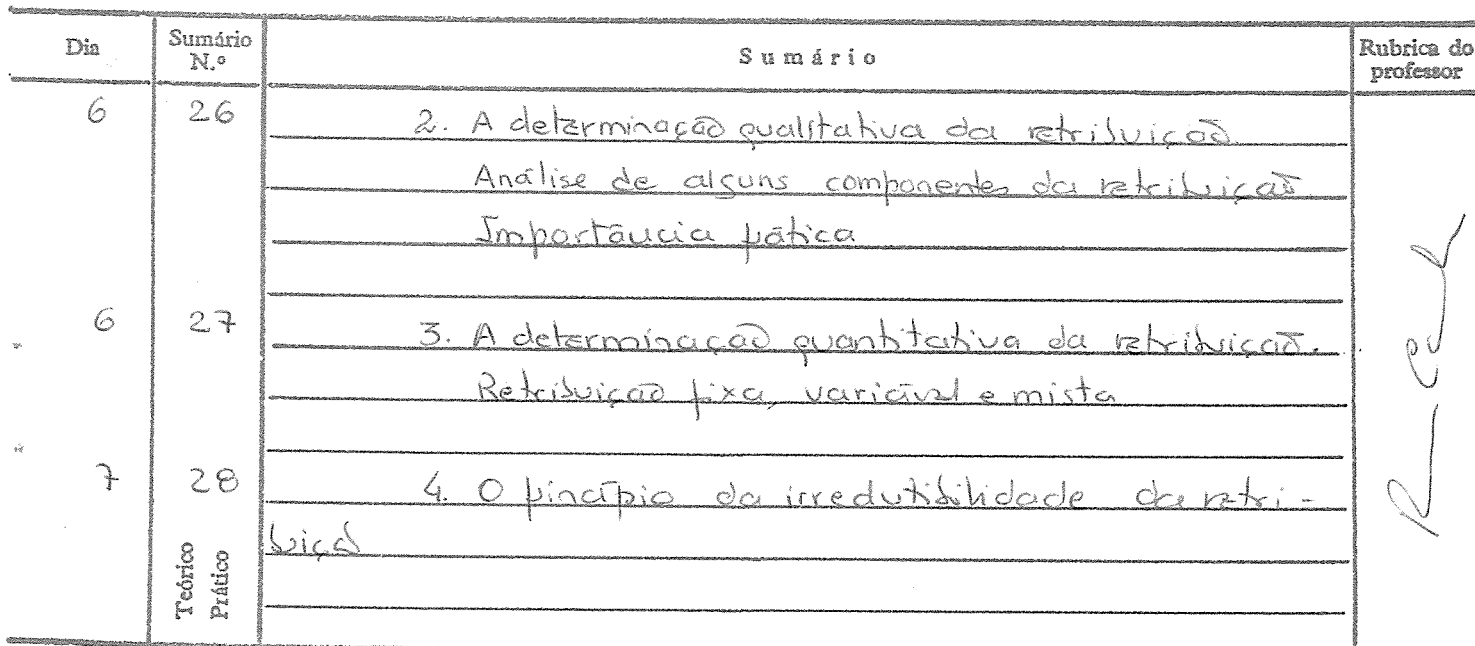 Dia Sumário N.º Sumário Rubrica do professor
6 26 2. A determinação qualitativa da retribuição
Análise de alguns componentes da retribuição
Importância prática
6 27 3. A determinação quantitativa da retribuição.
Retribuição fixa, variável e mista
7 28 4. O princípio da irredutibilidade da retri-
buição
Teórico
Prático